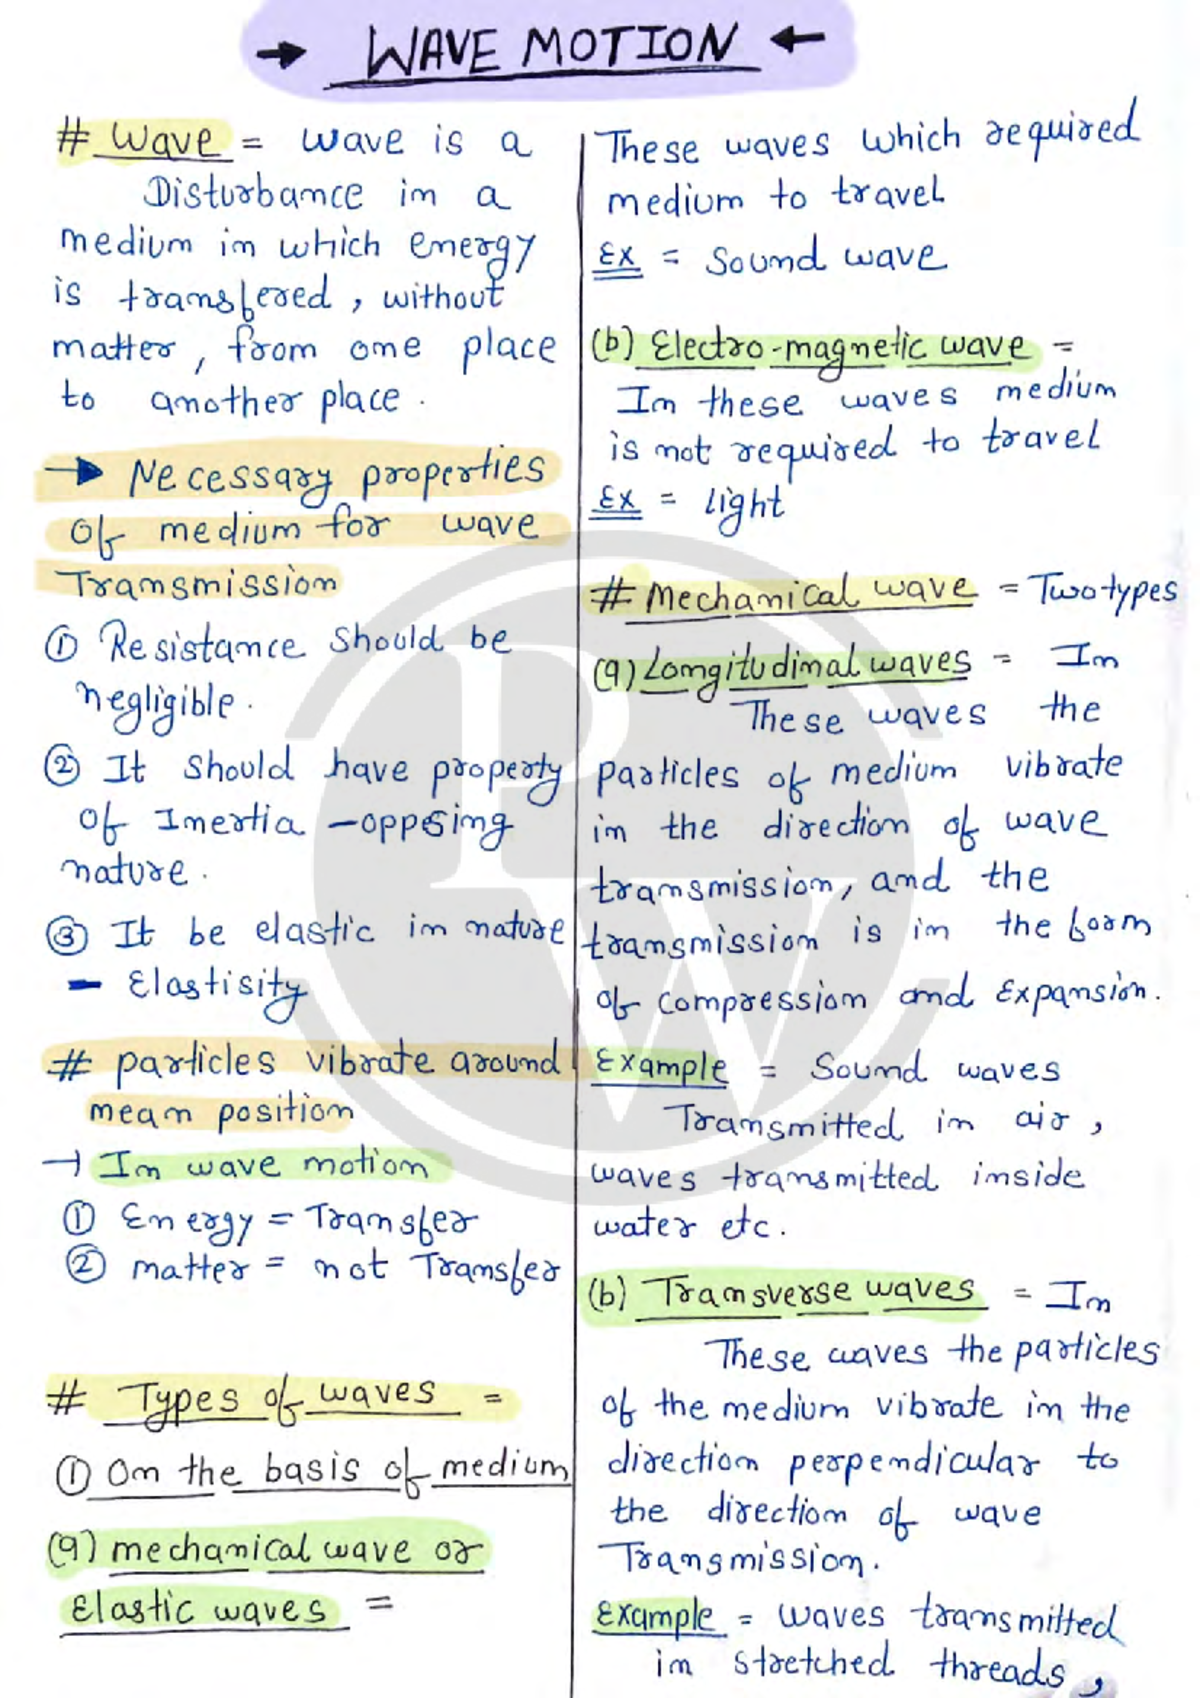 → WAVE MOTION ←
# Wave = Wave is a
Disturbance in a
medium in which energy
is transfered, without
matter, from one place
to another place.
→ Necessary properties
of medium for wave
Transmission
① Resistance should be
negligible.
② It should have property
of Inertia - opposing
nature.
③ It be elastic in nature
- Elastisity
# particles vibrate around
mean position
→ In wave motion
① Energy = Transfer
② matter = not Transfer
# Types of waves =
① On the basis of medium
(a) mechanical wave or
Elastic waves =
These waves which required
medium to travel
Ex = Sound wave
(b) Electro-magnetic wave =
In these waves medium
is not required to travel
Ex = Light
# Mechanical wave = Two types
(a) Longitudinal waves = In
These waves the
particles of medium vibrate
in the direction of wave
transmission, and the
transmission is in the form
of compression and Expansion.
Example = Sound waves
Transmitted in air,
waves transmitted inside
water etc.
(b) Transverse waves = In
These waves the particles
of the medium vibrate in the
direction perpendicular to
the direction of wave
Transmission.
Example = waves transmitted
in stretched threads,
PW